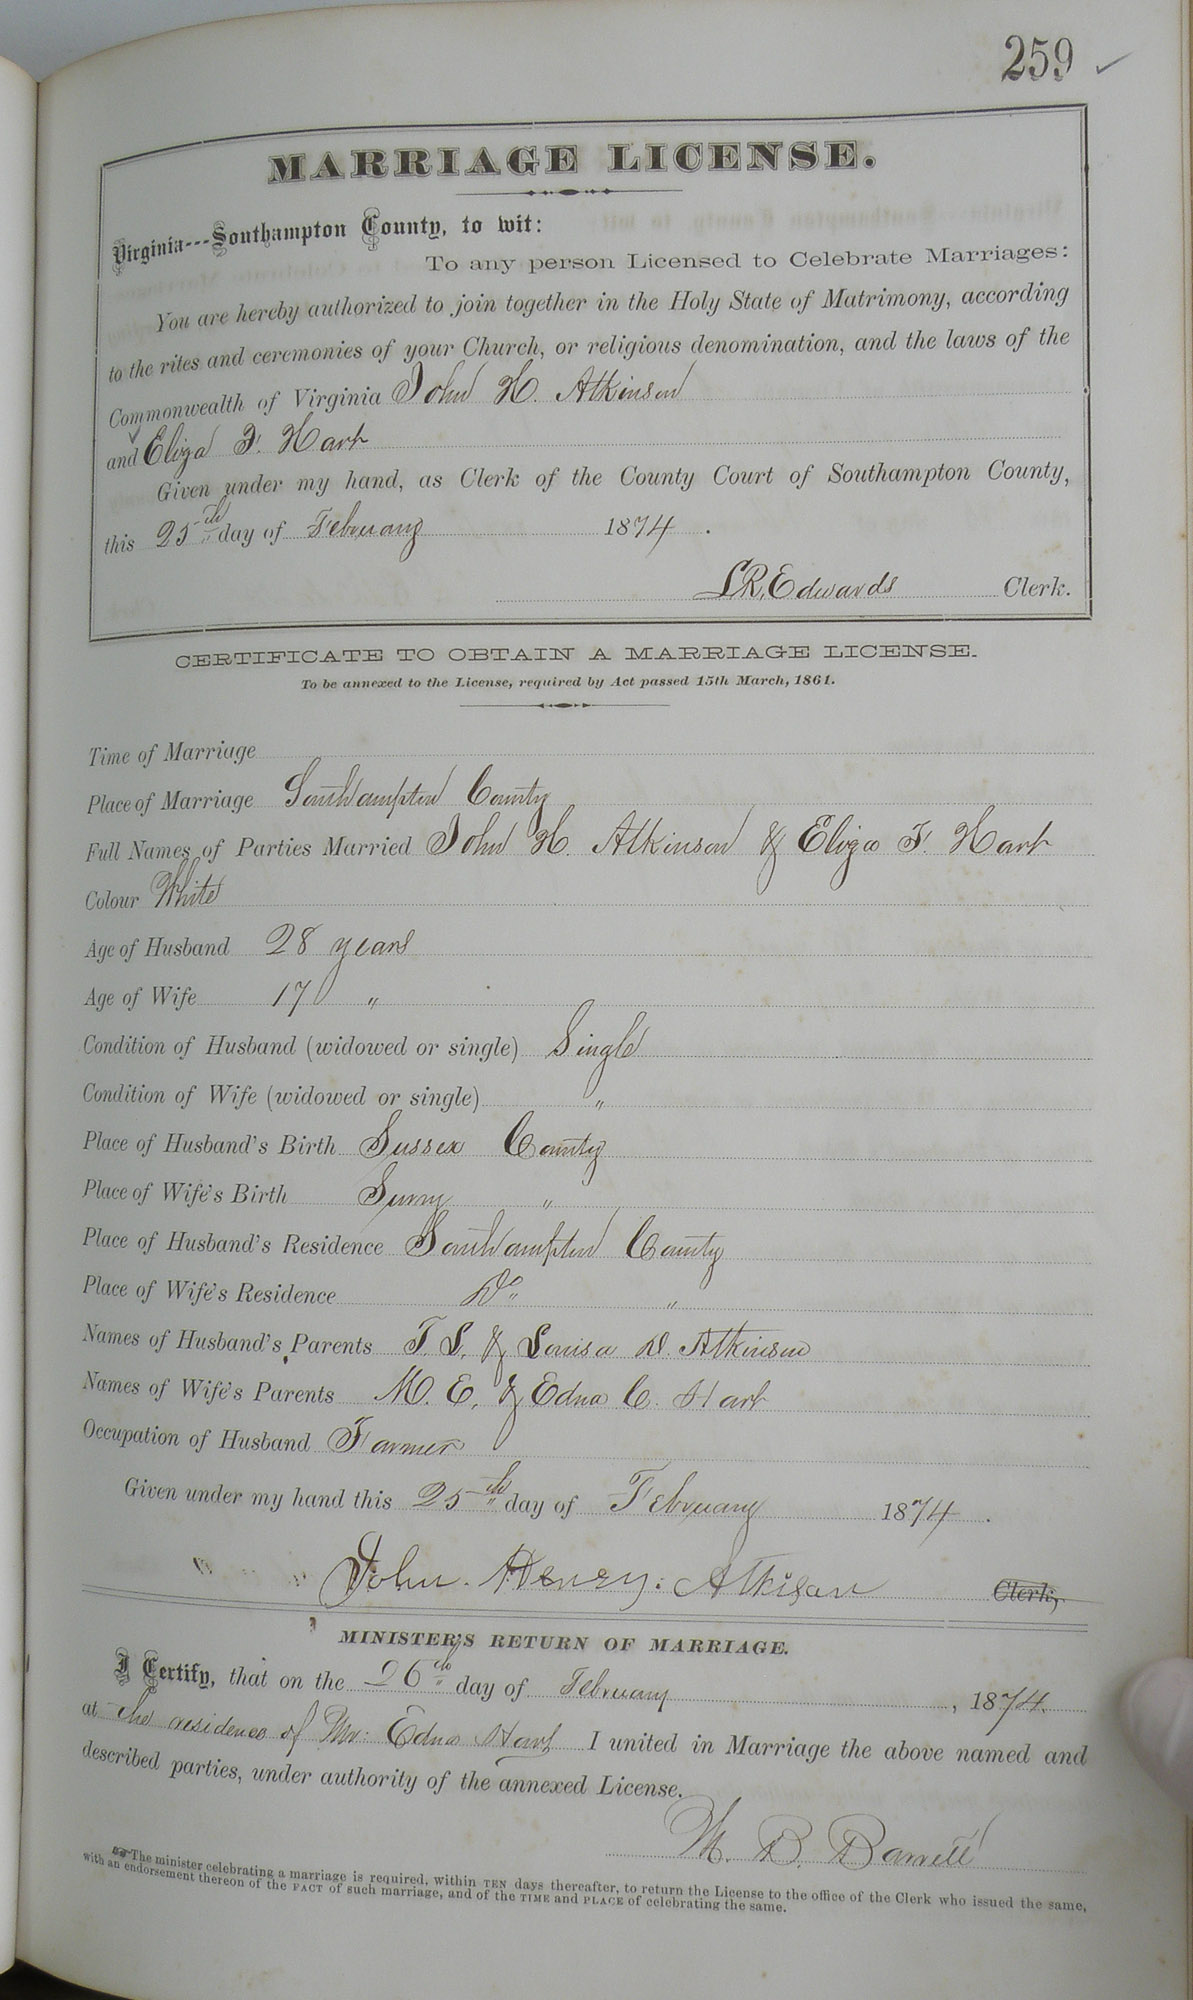 259 ✓
MARRIAGE LICENSE.
Virginia---Southampton County, to wit:
To any person Licensed to Celebrate Marriages:
You are hereby authorized to join together in the Holy State of Matrimony, according
to the rites and ceremonies of your Church, or religious denomination, and the laws of the
Commonwealth of Virginia John H. Atkinson
and Eliza F. Hart
Given under my hand, as Clerk of the County Court of Southampton County,
this 25th day of February 1874.
L R. Edwards Clerk.
CERTIFICATE TO OBTAIN A MARRIAGE LICENSE.
To be annexed to the License, required by Act passed 15th March, 1861.
Time of Marriage
Place of Marriage Southampton County
Full Names of Parties Married John H. Atkinson & Eliza F. Hart
Colour White
Age of Husband 28 years
Age of Wife 17 "
Condition of Husband (widowed or single) Single
Condition of Wife (widowed or single) "
Place of Husband's Birth Sussex County
Place of Wife's Birth Surry "
Place of Husband's Residence Southampton County
Place of Wife's Residence Do "
Names of Husband's Parents T. L. & Louisa D. Atkinson
Names of Wife's Parents M. E. & Edna C. Hart
Occupation of Husband Farmer
Given under my hand this 25th day of February 1874.
John. Henry. Atkisan Clerk,
MINISTER'S RETURN OF MARRIAGE.
I Certify, that on the 26th day of February, 1874.
at the residence of Edna Hart I united in Marriage the above named and
described parties, under authority of the annexed License.
B. Barrett
The minister celebrating a marriage is required, within TEN days thereafter, to return the License to the office of the Clerk who issued the same,
with an endorsement thereon of the FACT of such marriage, and of the TIME and PLACE of celebrating the same.